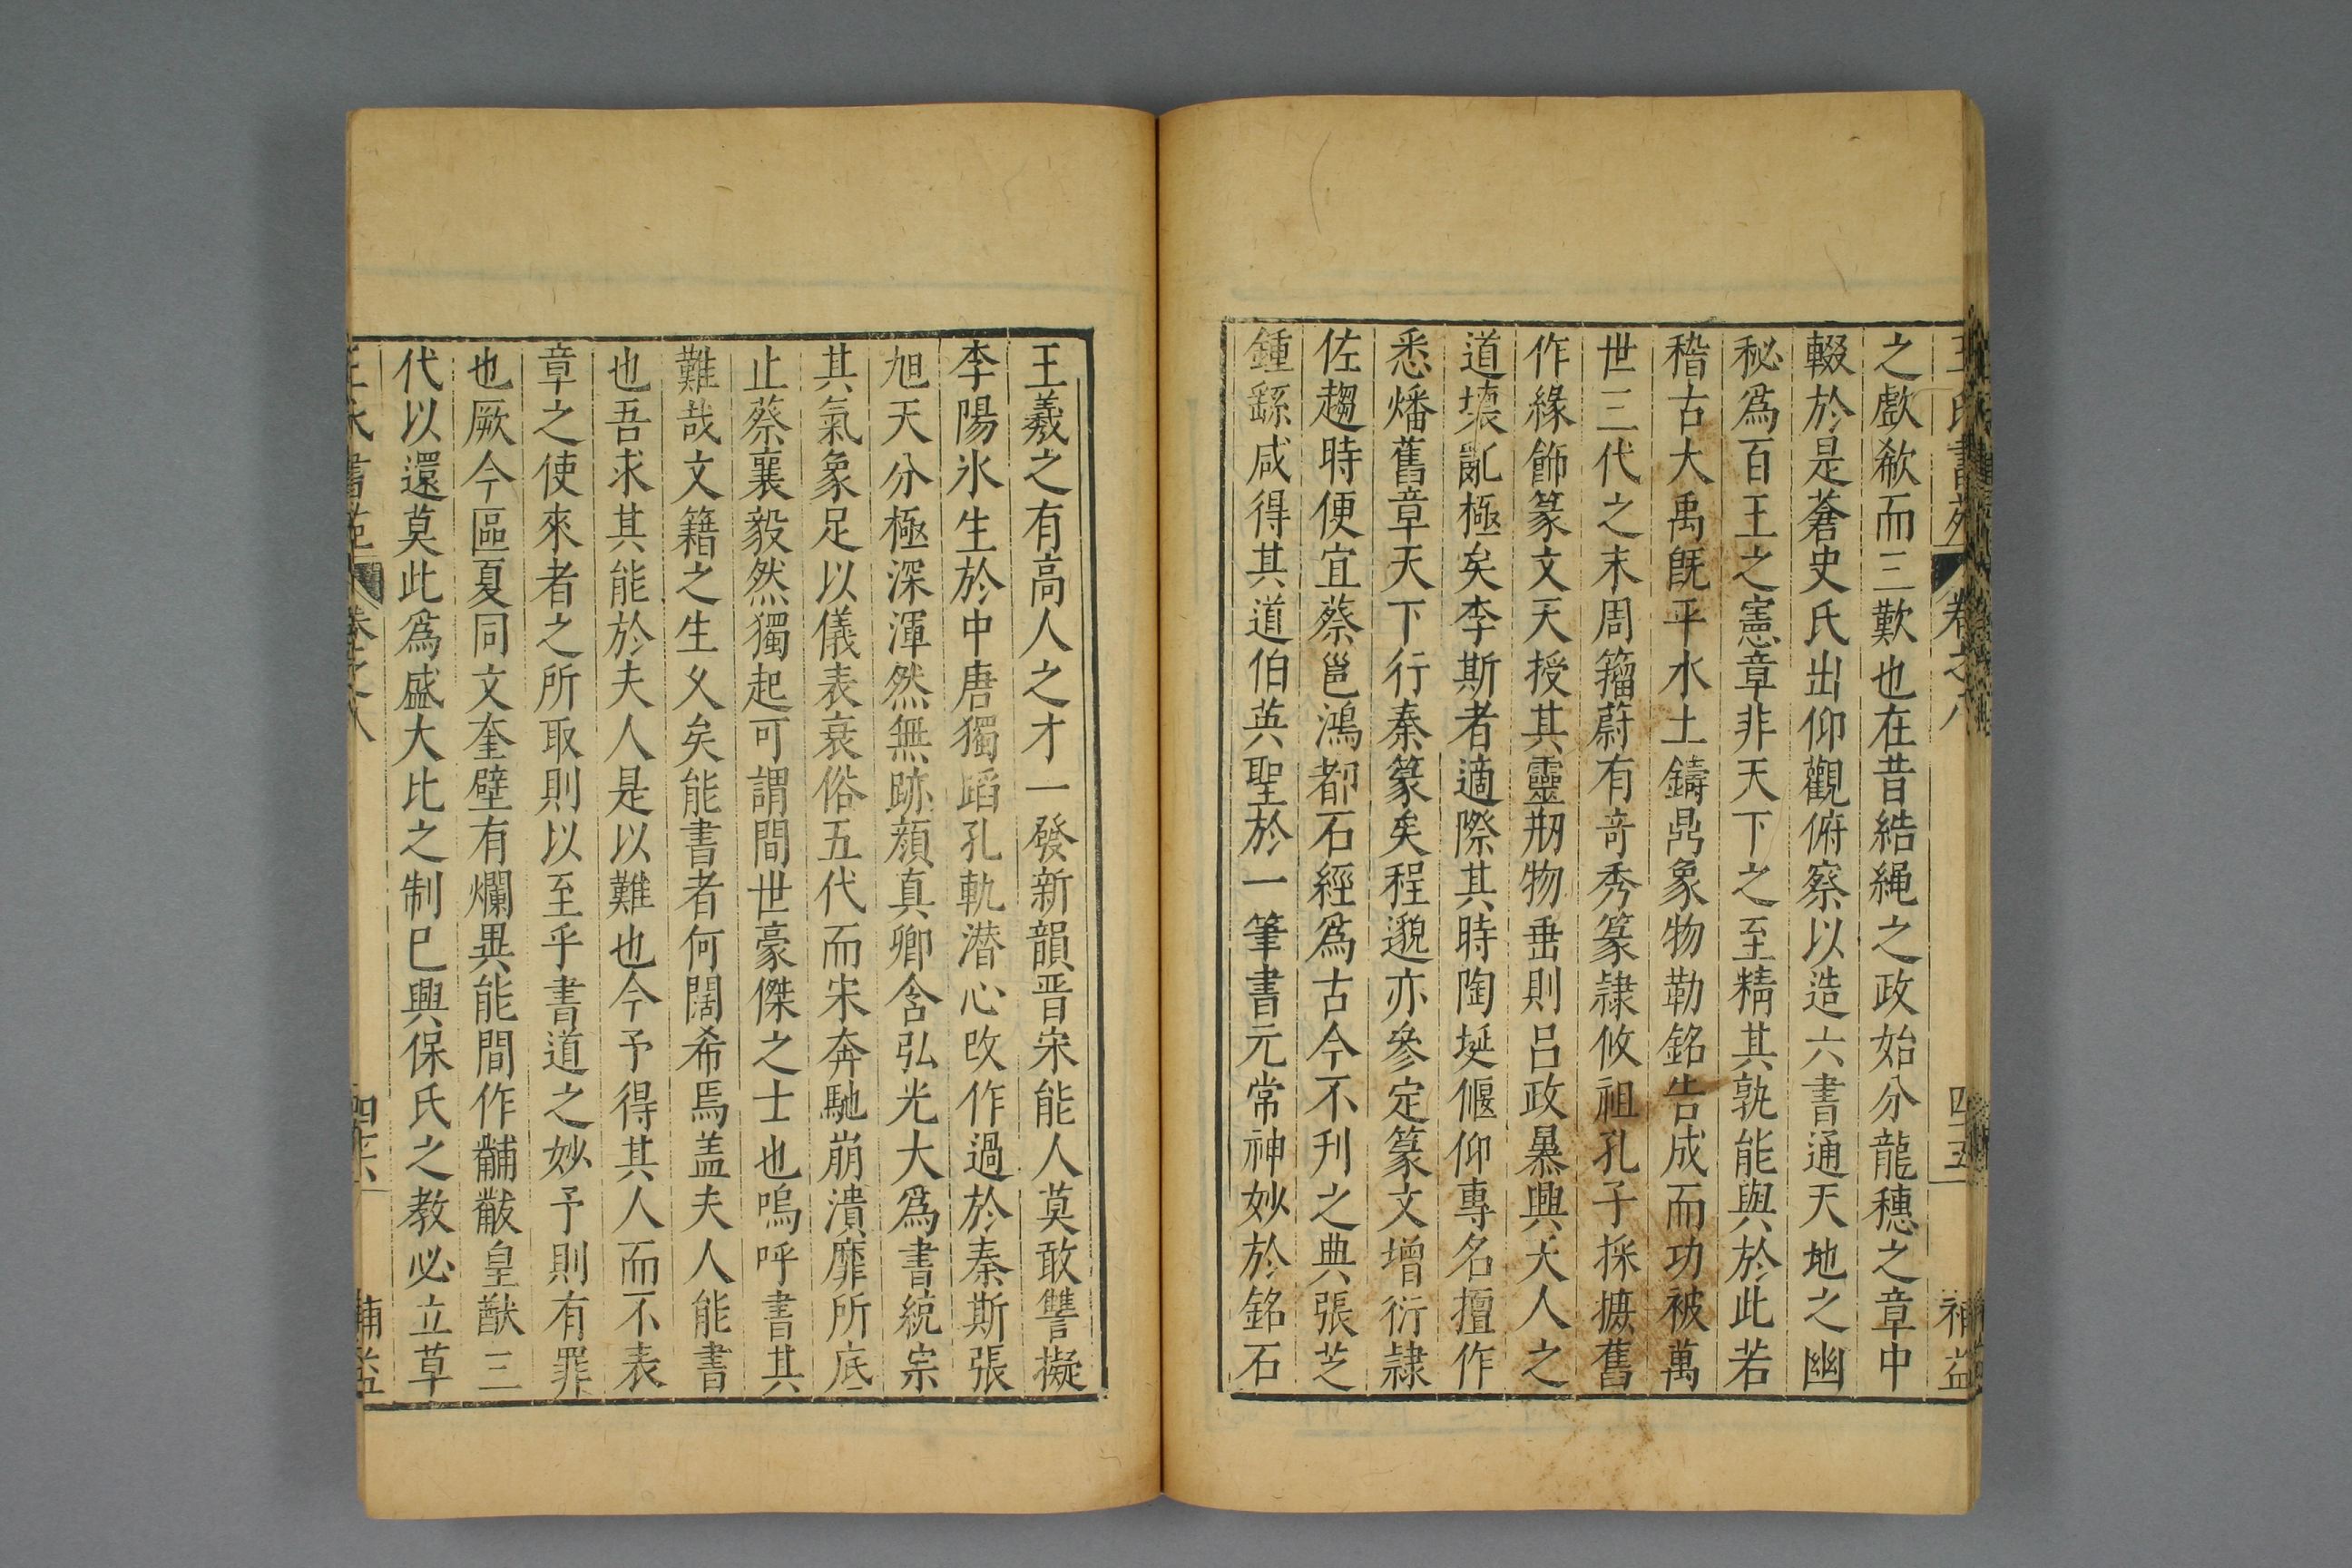 王氏書苑 卷之八 四十五 補益
之歔欷而三歎也在昔結繩之政始分龍穗之章中
輟於是蒼史氏出仰觀俯察以造六書通天地之幽
秘爲百王之憲章非天下之至精其孰能與於此若
稽古大禹旣平水土鑄鼎象物勒銘告成而功被萬
世三代之末周籀蔚有竒秀篆隷攸祖孔子採摭舊
作緣飾篆文天授其靈剏物垂則呂政暴興夭人之
道壞亂極矣李斯者適際其時陶埏偃仰專名擅作
悉燔舊章天下行秦篆矣程邈亦參定篆文增衍隷
佐趨時便宜蔡邕鴻都石經爲古今不刋之典張芝
鍾繇咸得其道伯英聖於一筆書元常神妙於銘石
王羲之有高人之才一發新韻晋宋能人莫敢讐擬
李陽氷生於中唐獨蹈孔軌潜心改作過於秦斯張
旭天分極深渾然無跡顔真卿含弘光大爲書統宗
其氣象足以儀表衰俗五代而宋奔馳崩潰靡所底
止蔡襄毅然獨起可謂間世豪傑之士也嗚呼書其
難哉文籍之生乆矣能書者何闊希焉盖夫人能書
也吾求其能於夫人是以難也今予得其人而不表
章之使來者之所取則以至乎書道之妙予則有罪
也厥今區夏同文奎壁有爛異能間作黼黻皇猷三
代以還莫此爲盛大比之制已興保氏之教必立草
王氏書苑 卷之八 四十六 補益